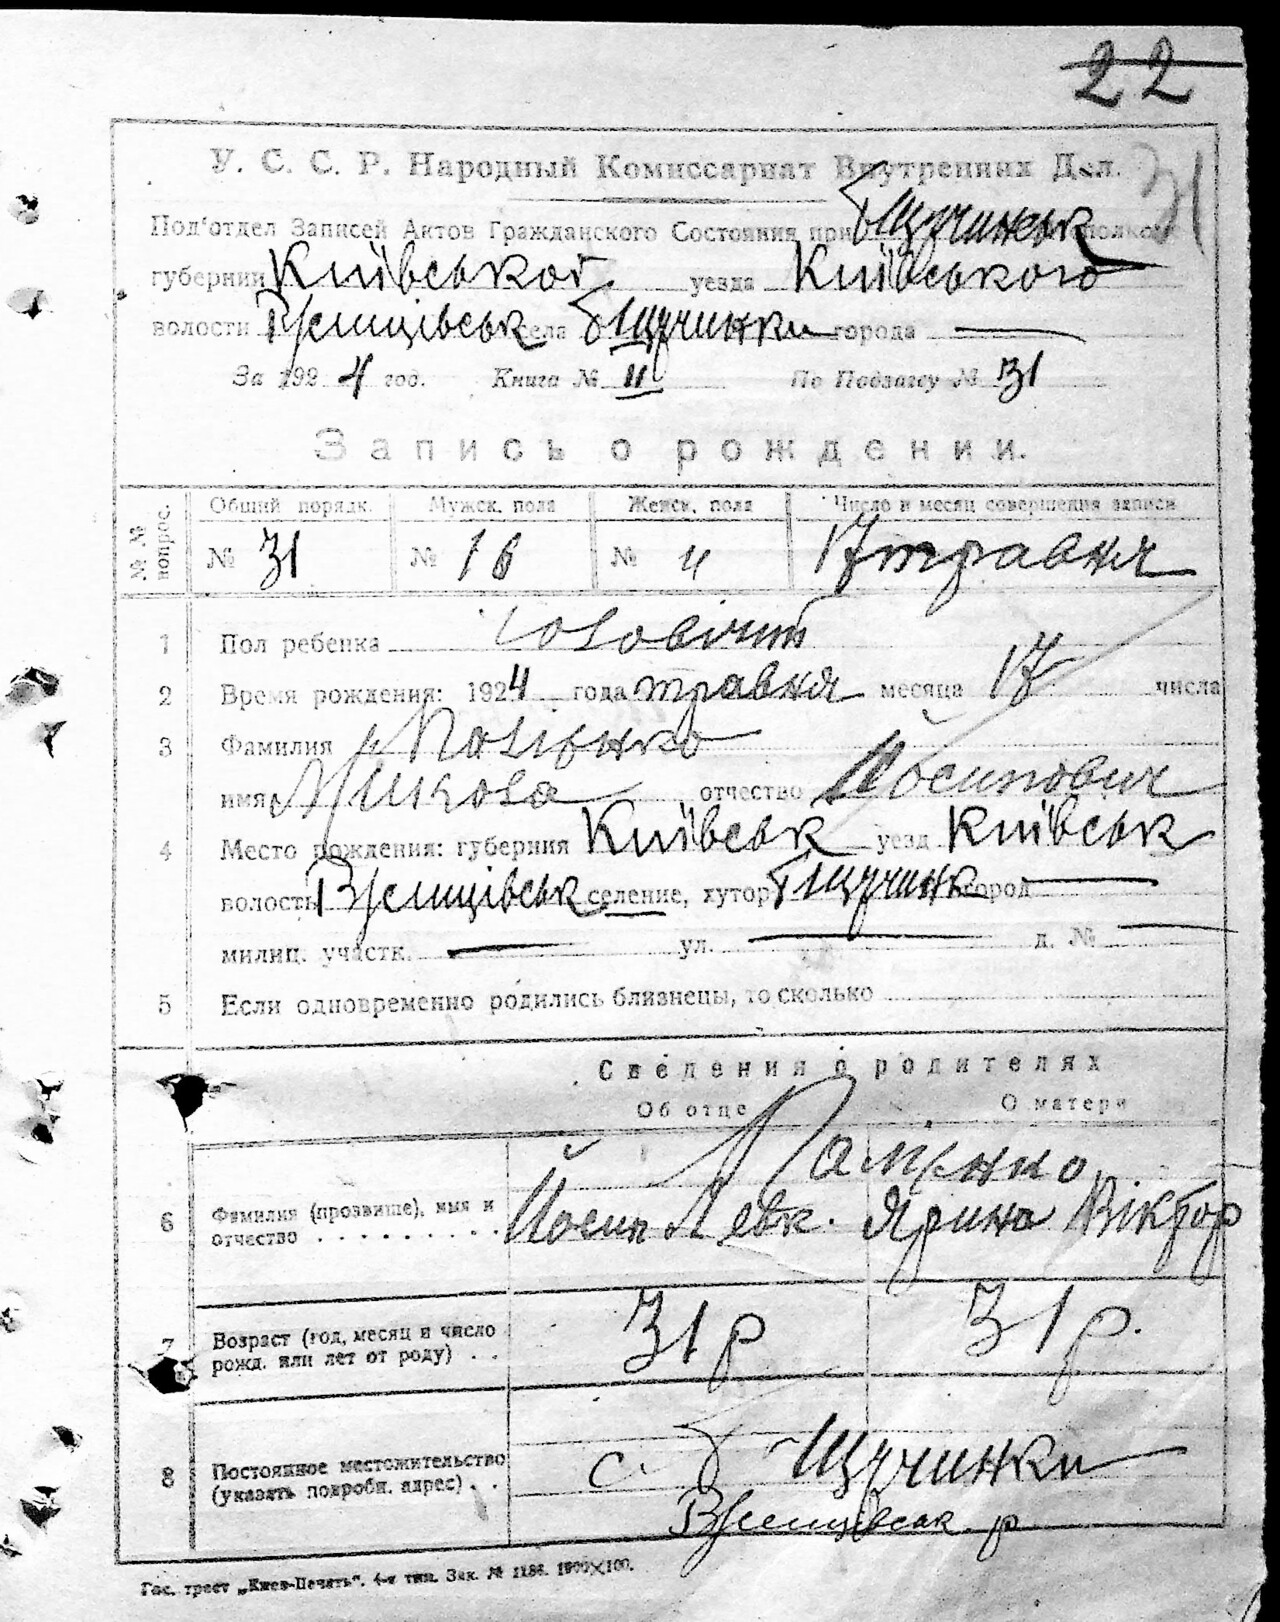 22
31
У. С. С. Р. Народный Комиссариат Внутренних Дел.
Под'отдел Записей Актов Гражданского Состояния при Б Щучинськ
губернии Київської уезда Київського
волости Ржищівськ села Б Щучинки города —
За 1924 год. Книга № II По Подзагсу № 31
Запись о рождении.
№ № вопрос. Общий порядк. Мужск. пола Женск. пола Число и месяц совершения записи
№ 31 № 16 № 17 травня
1 Пол ребенка чоловічий
2 Время рождения: 1924 года травня месяца 17 числа
3 Фамилия
имя Микола отчество Йосипович
4 Место рождения: губерния Київськ уезд Київськ
волость Ржищівськ селение, хутор Б Щучинк город —
милиц. участк. — ул. — д. № —
5 Если одновременно родились близнецы, то сколько
Сведения о родителях
Об отце О матери
6 Фамилия (прозвище), имя и отчество Йосип Левк. Ярина Віктор
7 Возраст (год, месяц и число рожд. или лет от роду) 31 р 31 р.
8 Постоянное местожительство (указать подробн. адрес) с. Б Щучинки
Ржищівськ р
Гос. трест „Киев-Печать". 4-я тип. Зак. № 1186. 1000×100.